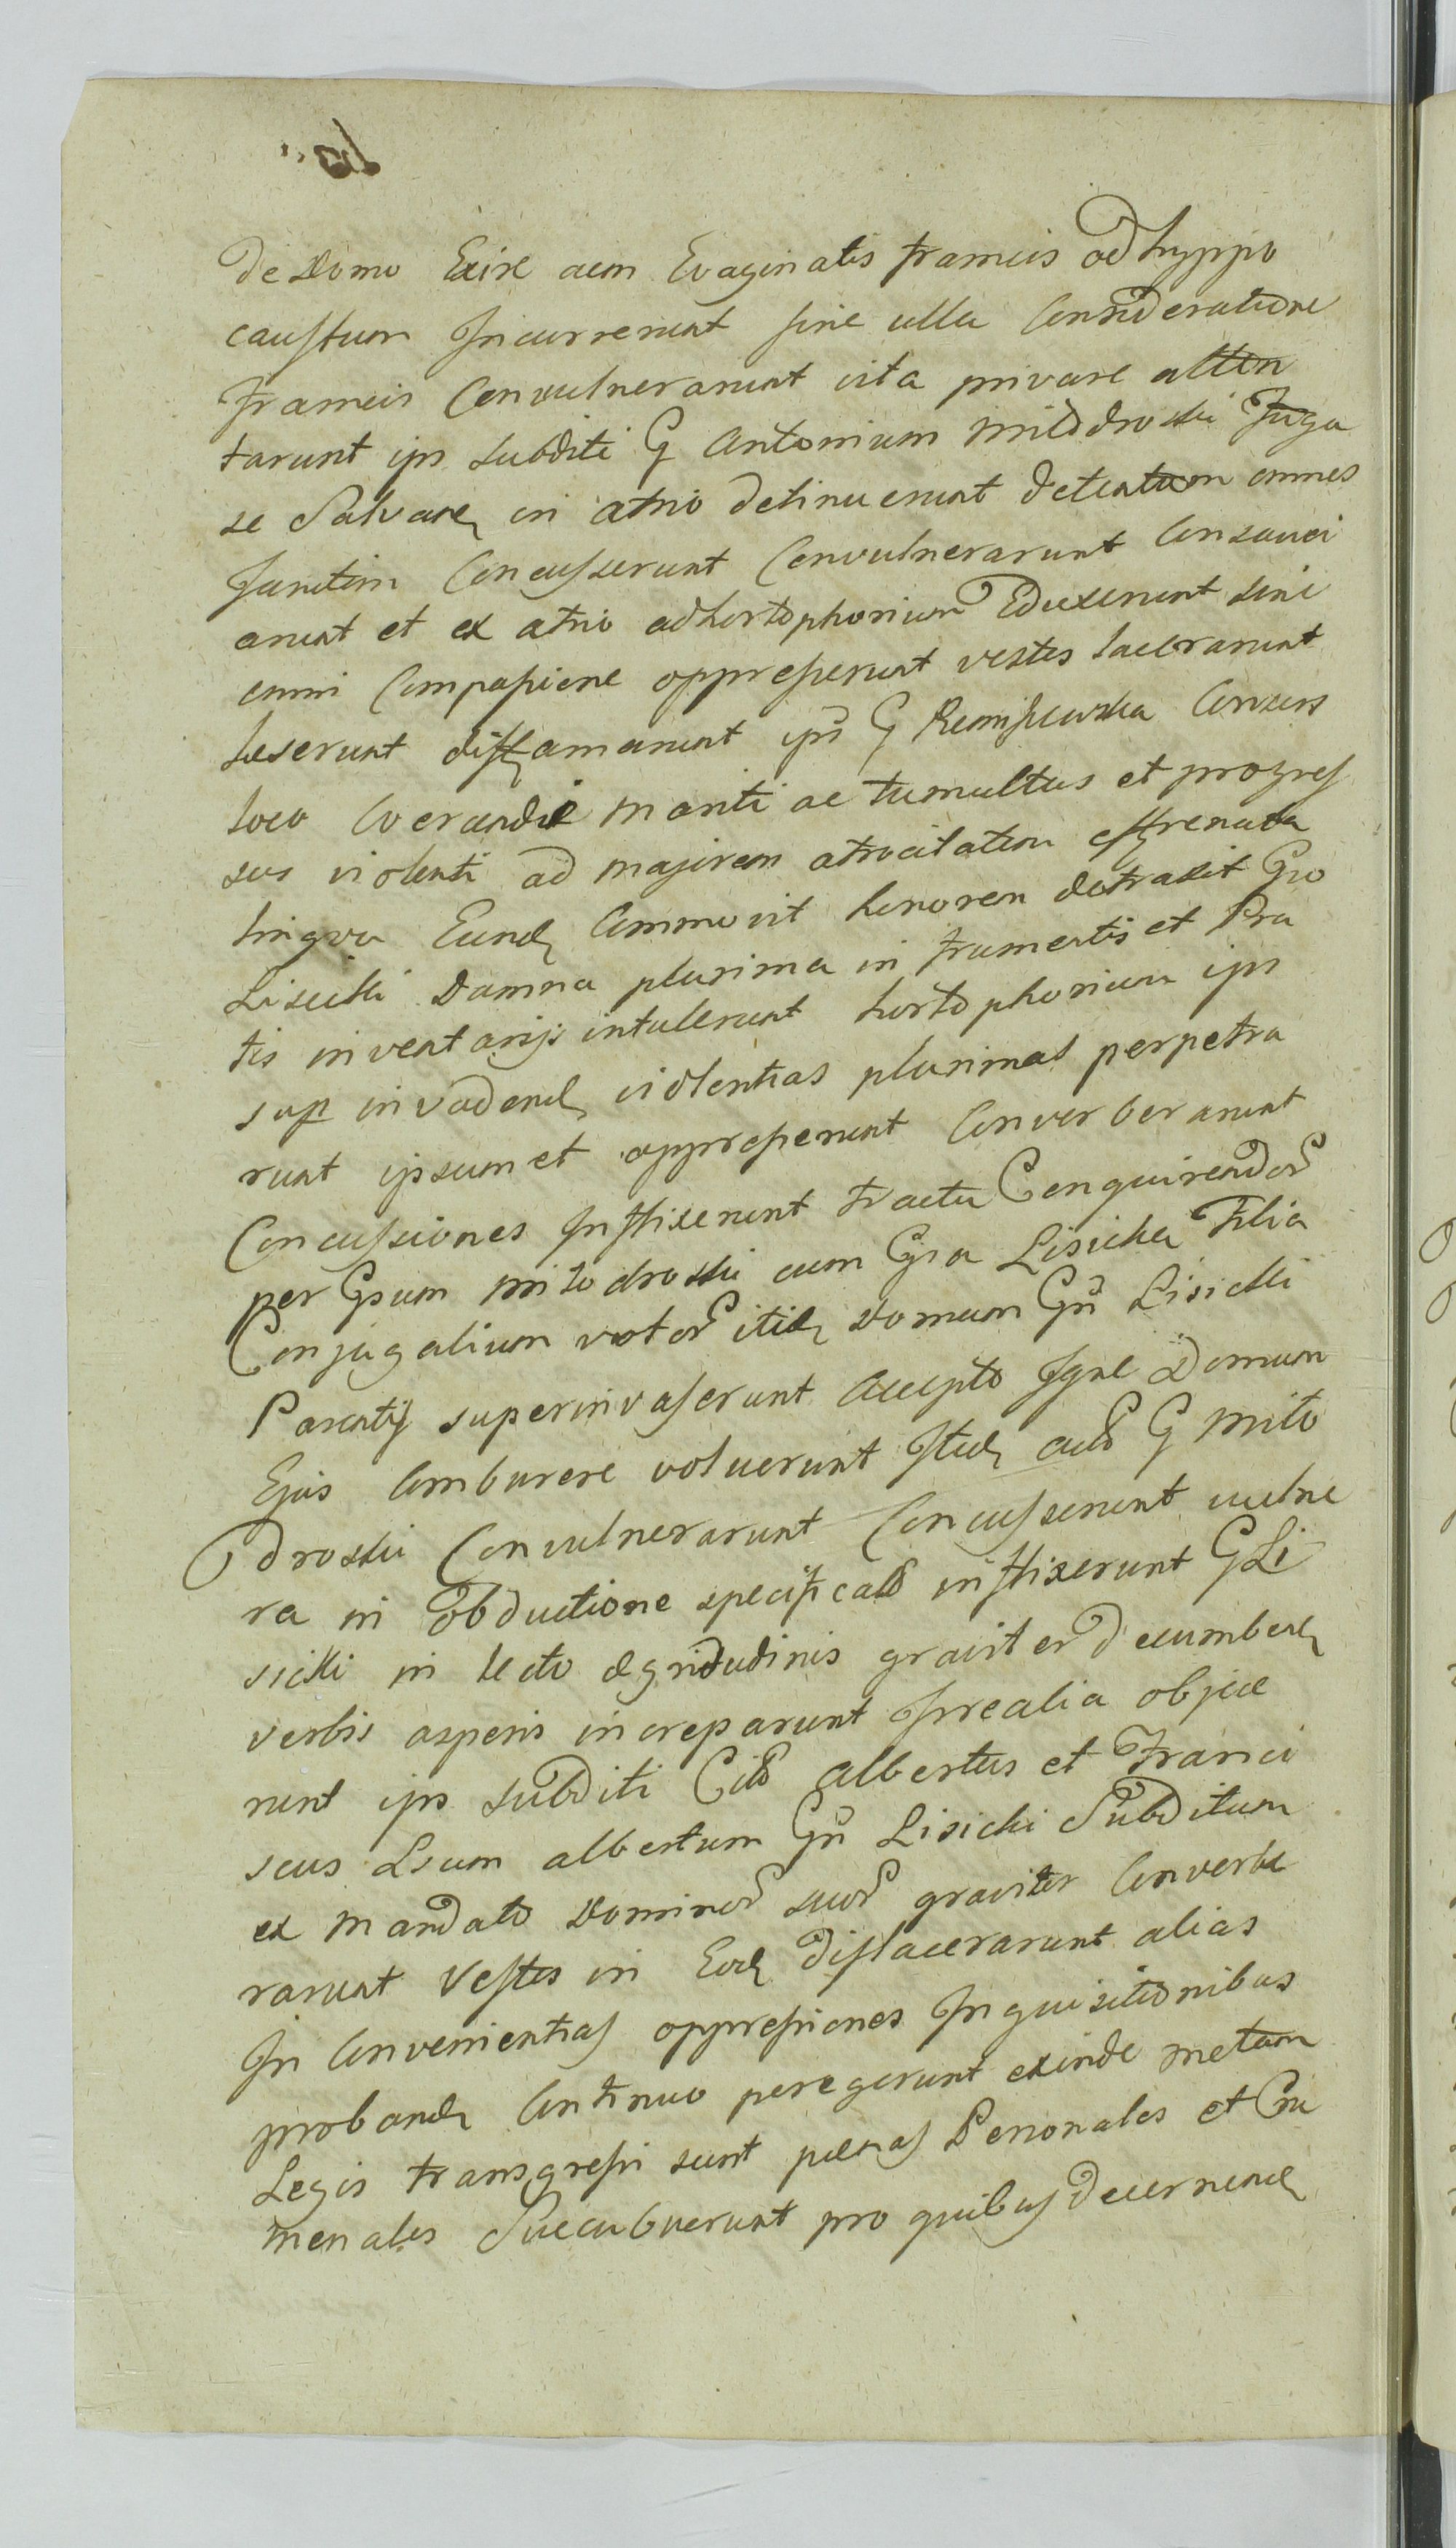 de Domo Exire cum Evaginatis frameis ad hyppo
caustum Incurrerunt sine ulla Consideratione
frameis Convulnerarunt vita privare atten
tarunt ips subditi G Antonium Mitodroski Fuga
se Salvare in atrio detinuerunt detentum omnes
Junctim Concusserunt Convulnerarunt Consauci
arunt et ex atrio ad hortophorium Eduxerunt sine
omni Compassione oppresserunt vestes lacerarunt
leserunt diffamarunt ips G Remiszewska Consors
loco Coercendi mariti ac tumultus et progres
sus violenti ad majorem atrocitatem effrenata
lingva Eund Commovit honorem detraxit Gro
Lisicki Damna plurima in frumentis et Pra
tis inventarijs intulerunt hortophorium ips
sup invadend violentias plurimas perpetra
runt ipsumet oppresserunt Converberarunt
Concussiones Inflixerunt tractu Conquirendor
per Gsum Mitodroski cum Gsa Lisicka Filia
Conjugalium votor itid Domum Gsi Lisicki
Parentis superinvaserunt accepto Igne Domum
Ejus Comburere voluerunt Itid G Mito
droski Convulnerarunt Concusserunt vulne
ra in obductione specificata inflixerunt G Li
sicki in lecto egritudinis graviter decumben
verbis asperis increparunt Irrealia objece
runt ips subditi Citt Albertus et Franci
scus Lsum Albertum Gsi Lisicki Subditum
ex mandato Dominor suor graviter Converbe
rarunt Vestes in Eod dislacerarunt alias
In Convenientias oppressiones Inquisitionibus
proband Continuo peregerunt exinde metam
Legis transgressi sunt poenas Personales et Cri
menales Succubuerunt pro quibus decernend